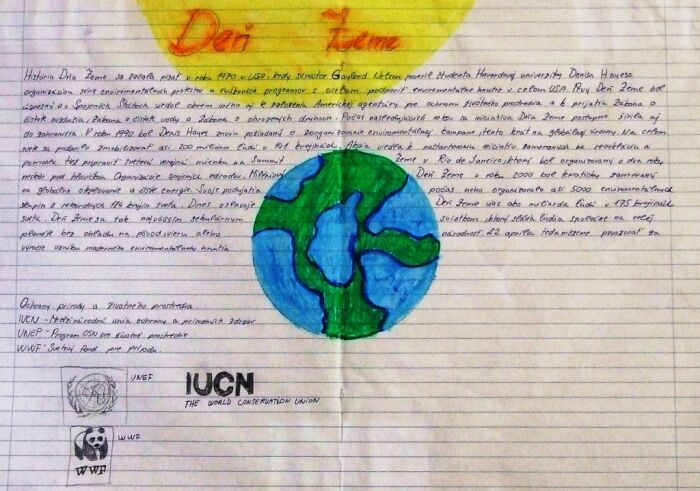 Deň Žeme
História Dňa Zeme sa začala písať v roku 1970 v USA, kedy senátor Gaylord Nelson poveril študenta Harvardovej univerzity Denisa Hayesa
organizáciou série enviromentálnych protestov a výukových programov s cieľom podporiť enviromentálne hnutie v celom USA. Prvý Deň Zeme bol
úspešní a v Spojených Štátoch viedol okrem iného aj k založeniu Americkej agentúry pre ochranu životného prostredia a k prijatiu Zákona o
čistote ovzdušia, Zákona o čistote vody a Zákona o ohrozených druhoch. Počas nasledujúcich rokov sa iniciatíva Dňa Zeme postupne šírila aj
do zahraničia. V roku 1990 bol Denis Hayes znovu požiadaný o zorganizovanie enviromentálnej kampane, tento krát na globálnej úrovni. Na celom
svete sa podarilo zmobilizovať asi 200 miliónu ľudí v 141 krajinách. Akcia viedla k naštartovaniu iniciatív zameraných na recykláciu a
pomohla tiež pripraviť svetovej verejnej mienku na Summit Zeme v Rio de Janeiro, ktorý bol organizovaný o dva roky
pod hlavičkou Organizácie spojených národov. Deň Zeme v roku 2000 bol tematicky zameraný
na globálne otepľovanie a čisté energie. Svoje podujatia počas neho organizovalo asi 5000 enviromentálnych
skupín z rekordných 184 krajín sveta. Dnes oslavuje Deň Zeme viac ako miliarda ľudí v 175 krajinách
sveta. Deň Zeme sa tak najväčším sekulárnym sviatkom, ktorý slávia ľudia spoločne na celej
planéte bez ohľadu na pôvod, vieru alebo národnosť. 22 apríla teda môžeme považovať za
výročie vzniku moderného enviromentálneho hnutia
Ochrany prírody a životného prostredia
IUCN - Medzinárodní unia ochrany a prírodných zdrojov
UNEP - Program OSN pre životné prostredie
WWF - Svetový Fond pre prírodu.
UNEF
IUCN
THE WORLD CONSERVATION UNION
WWF
WWF